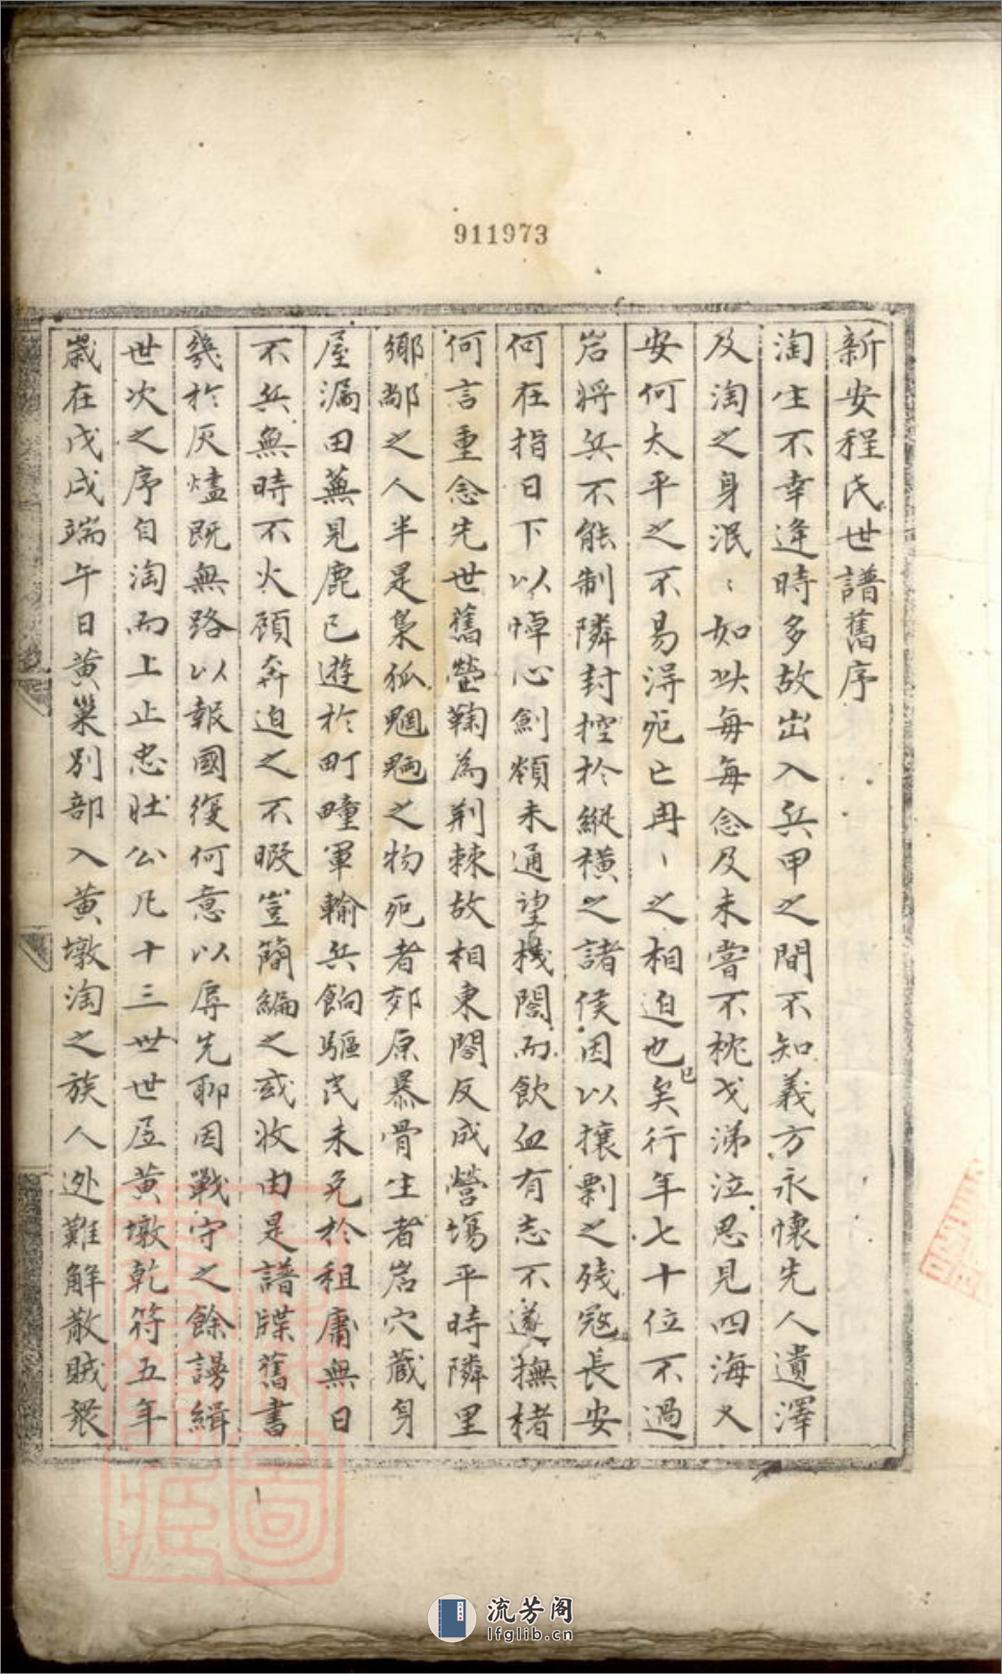 911973
新安程氏世譜舊序
淘生不幸逢時多故出入兵甲之間不知義方永懷先人遺澤
及淘之身泯〻如此每每念及未嘗不枕戈涕泣思見四海乂
安何太平之不易得死亡冉〻之相迫也已矣行年七十位不過
岩將兵不能制隣封控於縱横之諸侯因以攘剽之殘冦長安
何在指日下以悼心劍額未通望棧閣而飲血有志不遂撫楮
何言重念先世舊塋鞠為荆棘故相東閣反成營塲平時隣里
鄉鄰之人半是梟狐魍魎之物死者郊原暴骨生者岩穴藏身
屋漏田蕪見鹿已遊於町畽軍輸兵餉驅民未免於租庸無日
不兵無時不火顧奔迫之不暇豈簡編之或收由是譜牒舊書
㡬於灰燼既無路以報國復何意以辱先聊因戰守之餘謾緝
世次之序自淘而上止忠壯公凡十三世世居黄墩乾符五年
歲在戊戌端午日黄巢别部入黄墩淘之族人逊難解散賊衆
流芳阁
lfglib.cn